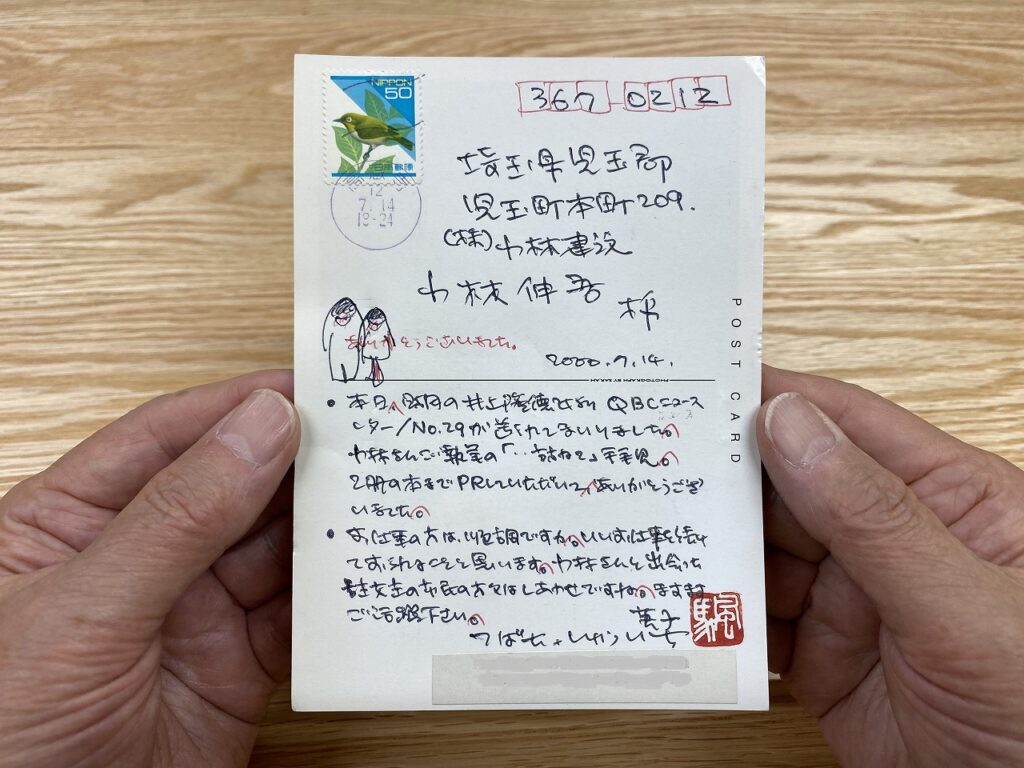 NIPPON
50
日本郵便
12
7.14
18-24
367-0212
埼玉県児玉郡
児玉町本町209.
(株)小林建設
小林伸吾 様
ありがとうございました。
2000.7.14.
PHOTOGRAPH BY SARAH
POST CARD
• 本日、 の井上隆徳 より QBCニュース
レター/No.29が送られてまいりました。
小林さんご執筆の「・・訪ねて」拝見。
2冊の本までPRしていただいて、ありがとうござ
いました。
• お仕事の方は、順調ですか。いいお仕事を続け
ておられることと思います。小林さんと出会った
の市民の方々はしあわせですね。ますます
ご活躍下さい。